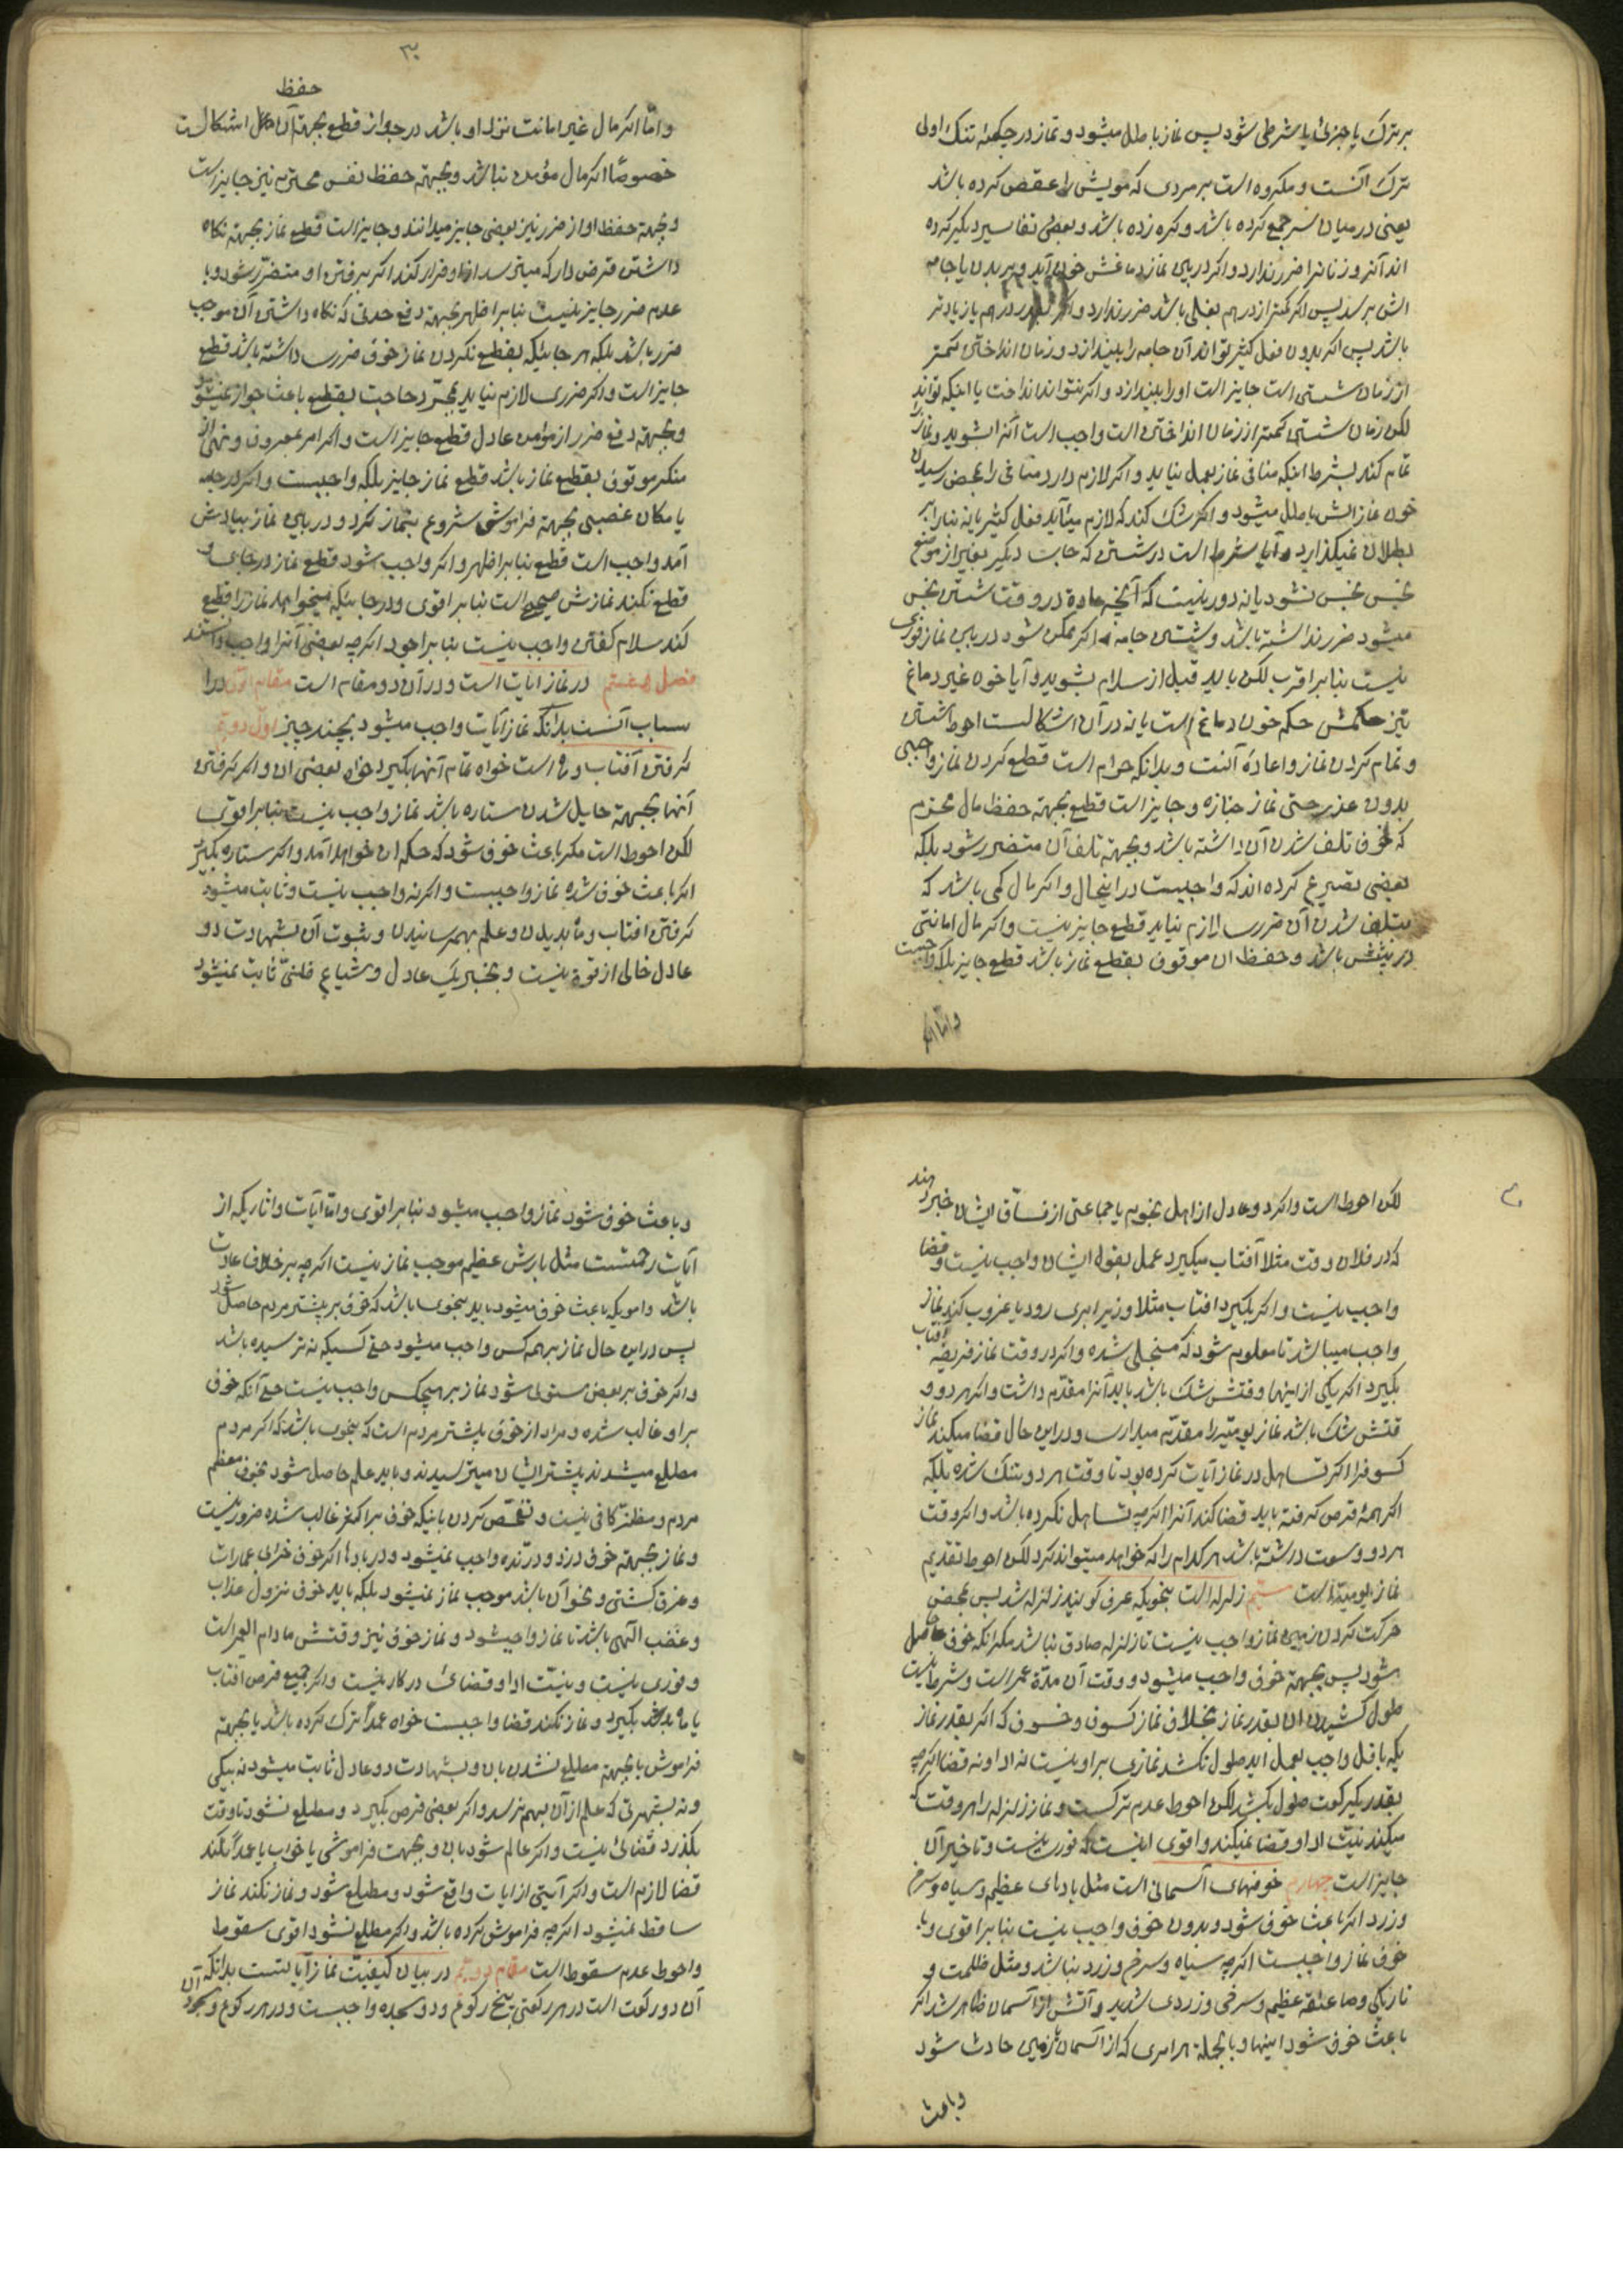 بر ترک یا جزئی یا شرطی شود پس نماز باطل میشود و نماز در چکمهٔ تنک اولی
ترک آنست و مکروه است بر مردی که مویش را عقص کرده باشد
یعنی در میان سر جمع کرده باشد و کره زده باشد و بعضی تفاسیر دیکر کرده
اند آنرو زنانرا ضرر ندارد و اکر در بین نماز دماغش خون آید و بر بدن یا جامه
اش برسد پس اکر کمتر از درهم بغلی باشد ضرر ندارد و اکر بقدر درهم یا زیادتر
باشد پس اکر بدون فعل کثیر تواند آن جامه را بیندازد و زمان انداختن کمتر
از زمان شستن است جایز است او را بیندازد و اکر نتواند انداخت یا اینکه تواند
لکن زمان شستن کمتر از زمان انداختن است واجب است آنرا بشوید و نماز را
تمام کند بشرط اینکه منافی نماز بعمل نیاید و اکر لازم دارد منافی را بمحض رسیدن
خون نمازش باطل میشود و اکر شک کند که لازم میآید فعل کثیر یا نه بنا را بر
بطلان نمیکذارد و آیا شرط است در شستن که جانب دیکر بغیر از موضع
نجس نجس نشود یا نه دور نیست که آنچه عادة در وقت شستن نجس
میشود ضرر نداشته باشد و شستن جامه اکر ممکن شود در بین نماز فوری
نیست بنا بر اقرب لکن باید قبل از سلام بشوید و آیا خون غیر دماغ
نیز حکمش حکم خون دماغ است یا نه در آن اشکالست احوط شستن
و تمام کردن نماز و اعادهٔ آنست و بدانکه حرام است قطع کردن نماز واجبی
بدون عذر حتی نماز جنازه و جایز است قطع بجهته حفظ مال محترم
که خوف تلف شدن آن داشته باشد و بجهته تلف آن متضرر شود بلکه
بعضی تصریح کرده اند که واجبست در اینحال و اکر مال کمی باشد که
بتلف شدن آن ضرری لازم نیاید قطع جایز نیست و اکر مال امانتی
در پیشش باشد و حفظ ان موقوف بقطع نماز باشد قطع جایز بلکه واجبست
و امّا اکر
۳۰
حفظ
و امّا اکر مال غیر امانت نزد او باشد در جواز قطع بجهته آن محل اشکالست
خصوصًا اکر مال مؤمن نباشد و بجهته حفظ نفس محترم نیز جایز است
و بجهته حفظ او از ضرر نیز بعضی جایز میدانند و جایز است قطع نماز بجهته نکاه
داشتن قرض دار که میترسد از او فرار کند اکر برفتن او متضرّر شود و با
عدم ضرر جایز نیست بنا بر اظهر بجهته دفع حدثی که نکاه داشتن آن موجب
ضرر باشد بلکه هر جائیکه بقطع نکردن نماز خوف ضرری داشته باشد قطع
جایز است و اکر ضرری لازم نیاید بمجرّد حاجت بقطع باعث جواز نمیشود
و بجهته دفع ضرر از مؤمن عادل قطع جایز است و اکر امر بمعروف و نهی از
منکر موقوف بقطع نماز باشد قطع نماز جایز بلکه واجبست و اکر در جامه
یا مکان غصبی بجهته فراموشی شروع بنماز کرد و در بین نماز بیادش
آمد واجب است قطع بنا بر اظهر و اکر واجب شود قطع نماز در جای و
قطع نکند نمازش صحیح است بنا بر اقوی و در جائیکه میخواهد نماز را قطع
کند سلام کفتن واجب نیست بنا بر اجود اکرچه بعضی آنرا واجب دانستند
فصل هشتم در نماز ایات است و در آن دو مقام است مقام اوّل در ا
سباب آنست بدانکه نماز آیات واجب میشود بچند چیز اول دوم
کرفتن آفتاب و ماه است خواه تمام آنها بکیرد خواه بعضی ان و اکر کرفتن
آنها بجهته حایل شدن ستاره باشد نماز واجب نیست بنا بر اقوی
لکن احوط است مکر باعث خوف شود که حکم ان خواهد آمد و اکر ستاره بکیرد
اکر باعث خوف شده نماز واجبست و اکر نه واجب نیست و ثابت میشود
کرفتن افتاب و ماه بدیدن و علم بهم رسانیدن و ثبوت آن بشهادت دو
عادل خالی از قوة نیست و بخبر یک عادل و شیاع ظنّی ثابت نمیشود
لکن احوط است و اکر دو عادل از اهل نجوم یا جماعتی از فسّاق ایشان خبر دهند
که در فلان وقت مثلا آفتاب میکیرد عمل بقول ایشان واجب نیست و قضا
واجب نیست و اکر بکیرد افتاب مثلا و زیر ابری رود یا غروب کند نماز
واجب میباشد تا معلوم شود که منجلی شده و اکر در وقت نماز فریضه آفتاب
بکیرد اکر یکی از اینها وقتش تنک باشد باید آنرا مقدّم داشت و اکر هر دو و
قتش تنک باشد نماز یومیّه را مقدّم میدارد و در این حال قضا میکند نماز
کسوف را اکر تساهل در نماز آیات کرده بود تا وقت هر دو تنک شده بلکه
اکر همهٔ قرص کرفته باید قضا کند آنرا اکرچه تساهل نکرده باشد و اکر وقت
هر دو وسعت داشته باشد هر کدام را که خواهد میتواند کرد لکن احوط تقدیم
نماز یومیّه است سیّم زلزله است بنحویکه عرف کویند زلزله شد پس بمحض
حرکت کردن زمین نماز واجب نیست تا زلزله صادق نباشد مکر انکه خوف حاصل
شود پس بجهته خوف واجب میشود و وقت آن مدّة عمر است و شرط نیست
طول کشیدن ان بقدر نماز بخلاف نماز کسوف و خسوف که اکر بقدر نماز
یکه باقل واجب بعمل اید طول نکشد نمازی بر او نیست نه ادا و نه قضا اکرچه
بقدر یکرکعت طول بکشد لکن احوط عدم ترکست و نماز زلزله را هر وقت که
میکند نیّت ادا و قضا نمیکند و اقوی اینست که فوری نیست و تاخیر آن
جایز است چهارم خوفهای آسمانی است مثل بادهای عظیم و سیاه و سرخ
و زرد اکر باعث خوف شود و بدون خوف واجب نیست بنا بر اقوی و با
خوف نماز واجبست اکرچه سیاه و سرخ و زرد نباشد و مثل ظلمت و
تاریکی و صاعقهٔ عظیم و سرخی و زردی شدید و آتش از آسمان ظاهر شد اکر
باعث خوف شود اینها و بالجمله هر امری که از آسمان یا زمین حادث شود
و باعث
و باعث خوف شود نماز واجب میشود بنا بر اقوی و امّا آیات و اثاریکه از
آیات رحمتست مثل بارش عظیم موجب نماز نیست اکرچه بر خلاف عادت
باشد و امریکه باعث خوف میشود باید بنحوی باشد که خوف بر بیشتر مردم حاصل شود
پس در این حال نماز بر همه کس واجب میشود حتی کسیکه نترسیده باشد
و اکر خوف بر بعض مستولی شود نماز بر هیچکس واجب نیست حتی آنکه خوف
بر او غالب شده و مراد از خوف بیشتر مردم است که بنحوی باشد که اکر مردم
مطلع میشدند بیشتر ایشان میترسیدند و باید علم حاصل شود بخوف معظم
مردم و مظنّه کافی نیست و تفحّص کردن باینکه خوف بر اکثر غالب شده ضرور نیست
و نماز بجهته خوف دزد و درّنده واجب نمیشود و در بادها اکر خوف خرابی عمارات
و غرق کشتی و نحو آن باشد موجب نماز نمیشود بلکه باید خوف نزول عذاب
و غضب الهی باشد تا نماز واجب شود و نماز خوف نیز وقتش مادام العمر است
و فوری نیست و نیّت ادا و قضائی در کار نیست و اکر جمیع قرص افتاب
یا ماه بکیرد و نماز نکند قضا واجبست خواه عمداً ترک کرده باشد یا بجهته
فراموشی یا بجهته مطلع نشدن بان و بشهادت دو عادل ثابت میشود نه بیکی
و نه بشهرتی که علم از آن بهم نرسد و اکر بعضی قرص بکیرد و مطلع نشود تا وقت
بکذرد قضائی نیست و اکر عالم شود بان و بجهت فراموشی یا خواب یا عمداً نکند
قضا لازم است و اکر آیتی از ایات واقع شود و مطلع شود و نماز نکند نماز
ساقط نمیشود اکرچه فراموش کرده باشد و اکر مطلع نشود اقوی سقوط
و احوط عدم سقوط است مقام دویّم در بیان کیفیّت نماز آیاتست بدانکه آن
آن دو رکعت است در هر رکعتی پنج رکوع و دو سجده واجبست و در هر رکوع و سجود